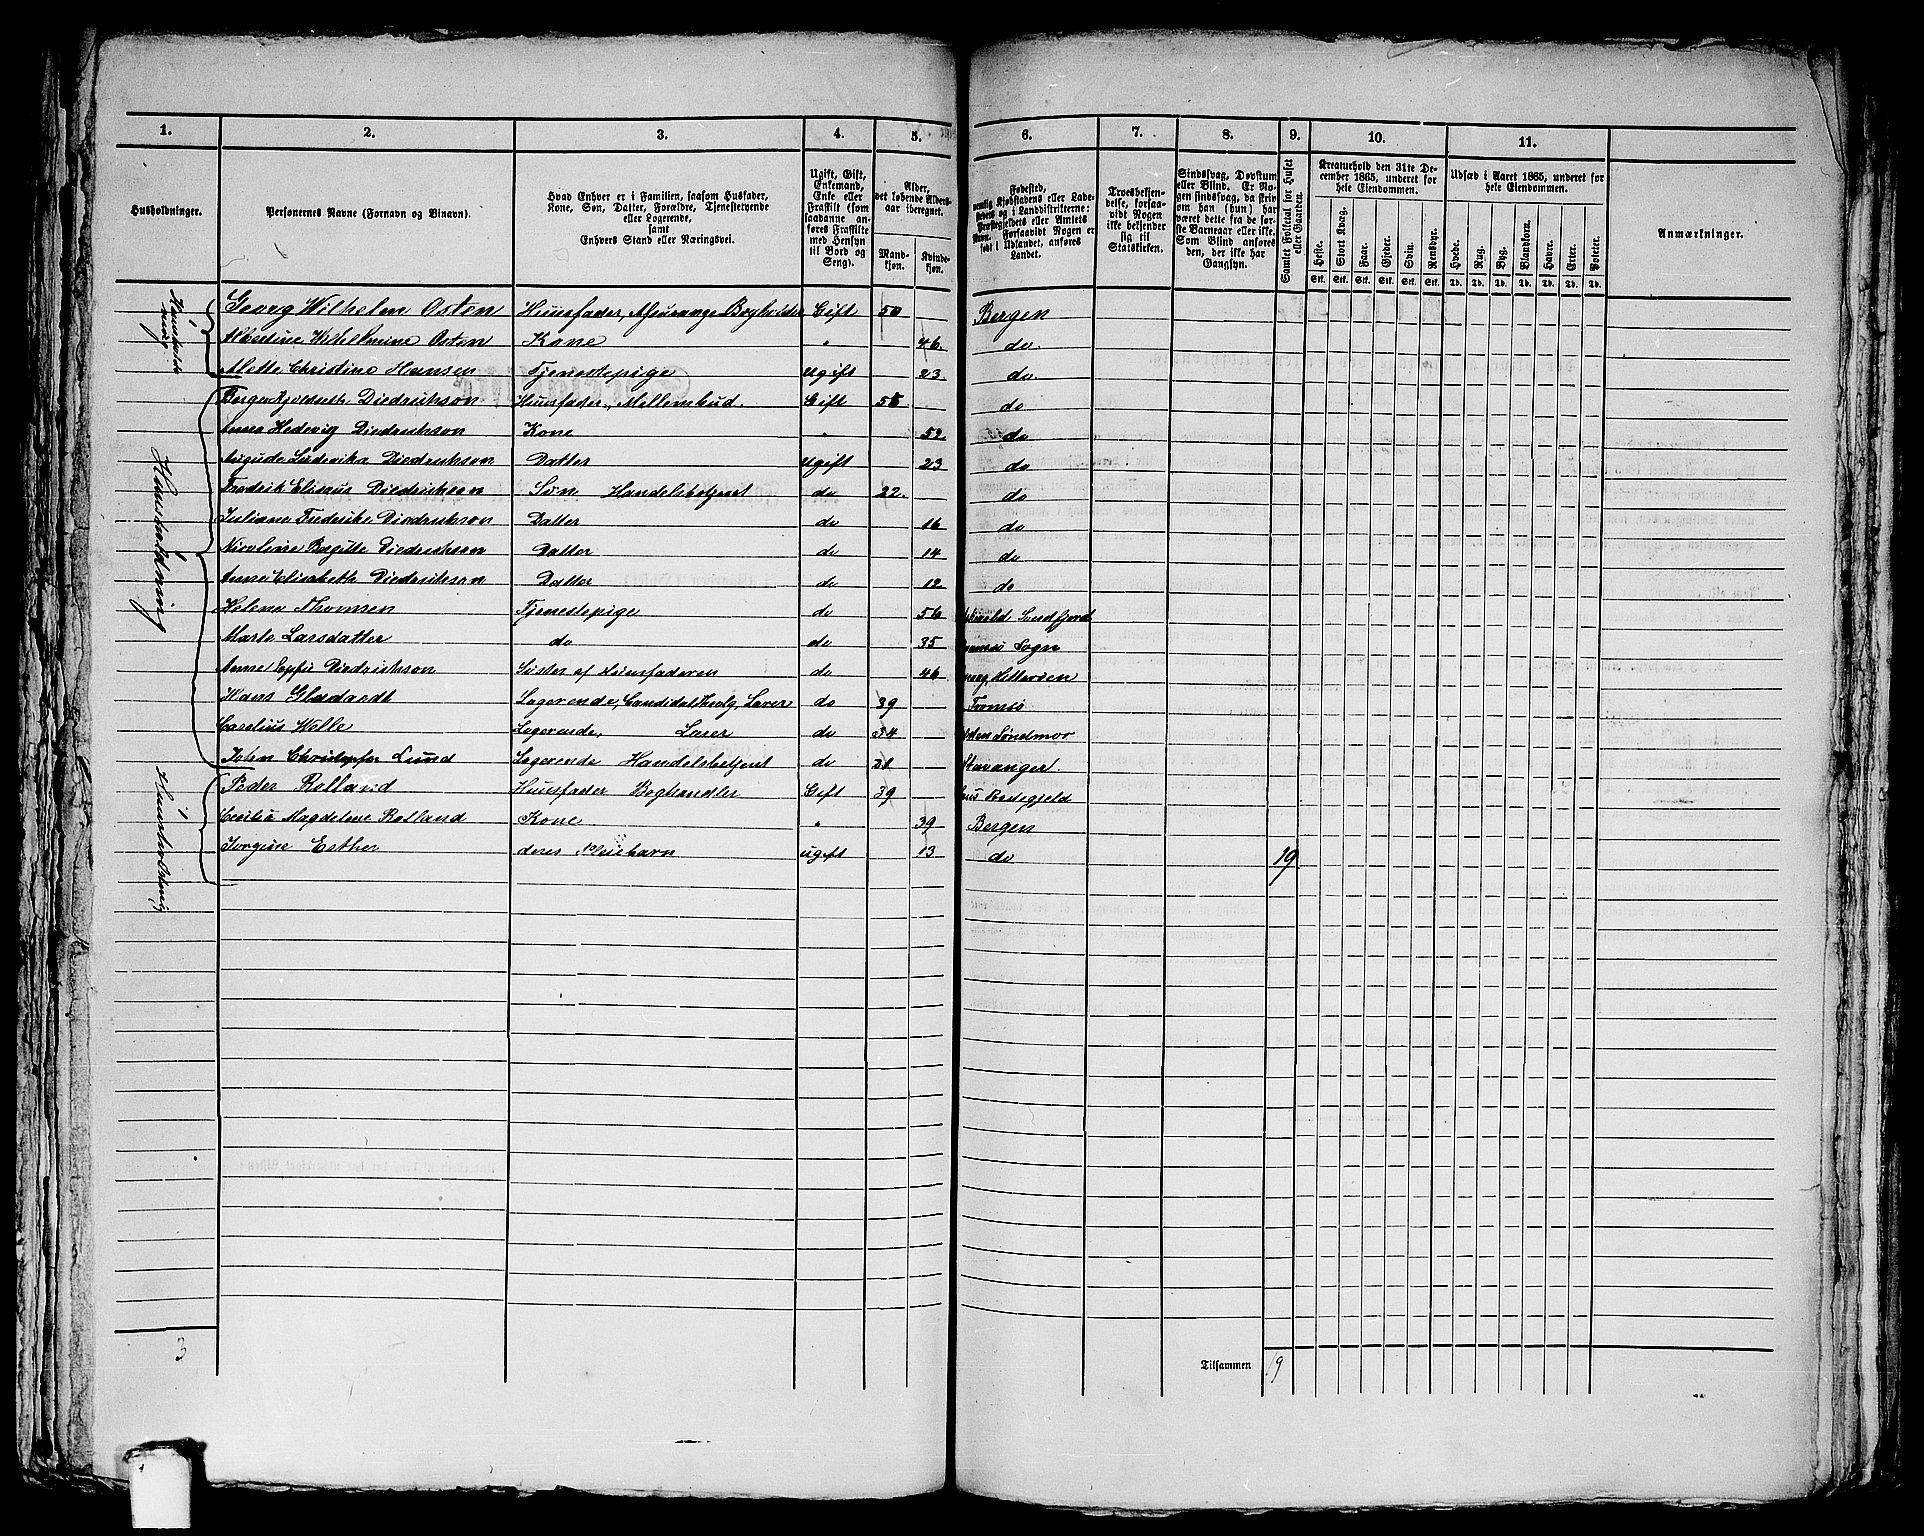 1. 2. 3. 4. 5. 6. 7. 8. 9. 10. 11.
Husholdninger.
Personernes Navne (Fornavn og Binavn).
Hvad Enhver er i Familien, saasom Husfader,
Kone, Søn, Datter, Forældre, Tjenestetyende
eller Logerende,
samt
Enhvers Stand eller Næringsvei.
Ugift, Gift,
Enkemand,
Enke eller
Fraskilt (som
saadanne an-
føres Fraskilte
med Hensyn
til Bord og
Seng).
Alder,
det løbende Alders-
aar iberegnet.
Mand-
kjøn.
Kvinde-
kjøn.
Fødested,
nemlig Kjøbstadens eller Lade-
stedets og i Landdistrikterne:
Præstegjeldets eller Amtets
Navn. Forsaavidt Nogen er
født i Udlandet, anføres
Landet.
Troesbekjen-
delse, forsaa-
vidt Nogen
ikke bekjender
sig til
Statskirken.
Sindssvag, Døvstum
eller Blind. Er No-
gen sindssvag, da skriv
om han (hun) har
været dette fra de før-
ste Barneaar eller ikke.
Som Blind anføres
den, der ikke har
Gangsyn.
Samlet Folketal for Huset
eller Gaarden.
Kreaturhold den 31te De-
cember 1865, underet for
hele Eiendommen.
Heste. Stort Kvæg. Faar. Gjeder. Svin. Rensdyr.
Stk. Stk. Stk. Stk. Stk. Stk.
Udsæd i Aaret 1865, underet for
hele Eiendommen.
Hvede. Rug. Byg. Blandkorn. Havre. Erter. Poteter.
Td. Td. Td. Td. Td. Td. Td.
Anmærkninger.
Georg Wilhelm Osten Huusfader, Assurange Bogholder Gift 50 Bergen
Albertine Wilhelmine Osten Kone " 46. do.
Alette Christine Hansen Tjenestepige ugift 23. do.
Diedrichson Huusfader, Mellembud. Gift 55 do
Anna Hedevig Diedrichson Kone " 52. do
Auguste Ludovika Diedrichson Datter ugift 23 do
Fredrik Diedrichson Søn Handelsbetjent do 22. do
Juliane Frederike Diedrichson Datter do 16 do
Nicoline Birgitte Diedrichson Datter do 14 do
Anne Elisabeth Diedrichson Datter do 12. do
Helene Thomsen Tjenestepige do 56 Sundfjord
Marte Larsdatter do do 35 Sogn
Anne Diedrichson Søster af Huusfaderen do 46
Hans Logerende, Candidat theolg, Lærer do 39 Tromsö
Carolius Welle Logerende, Lærer do 34 Söndmør
John Christopher Lund Logerende Handelsbetjent do 21 Stavanger.
Peder Rolland Huusfader Boghandler Gift 39 Prestegjeld
Cecilia Magdelene Rolland Kone " 39 Bergen
Jorgine Esther deres Pleiebarn ugift 13 do 19
Huusholdning
Huusholdning
Huusholdning
3
Tilsammen 19